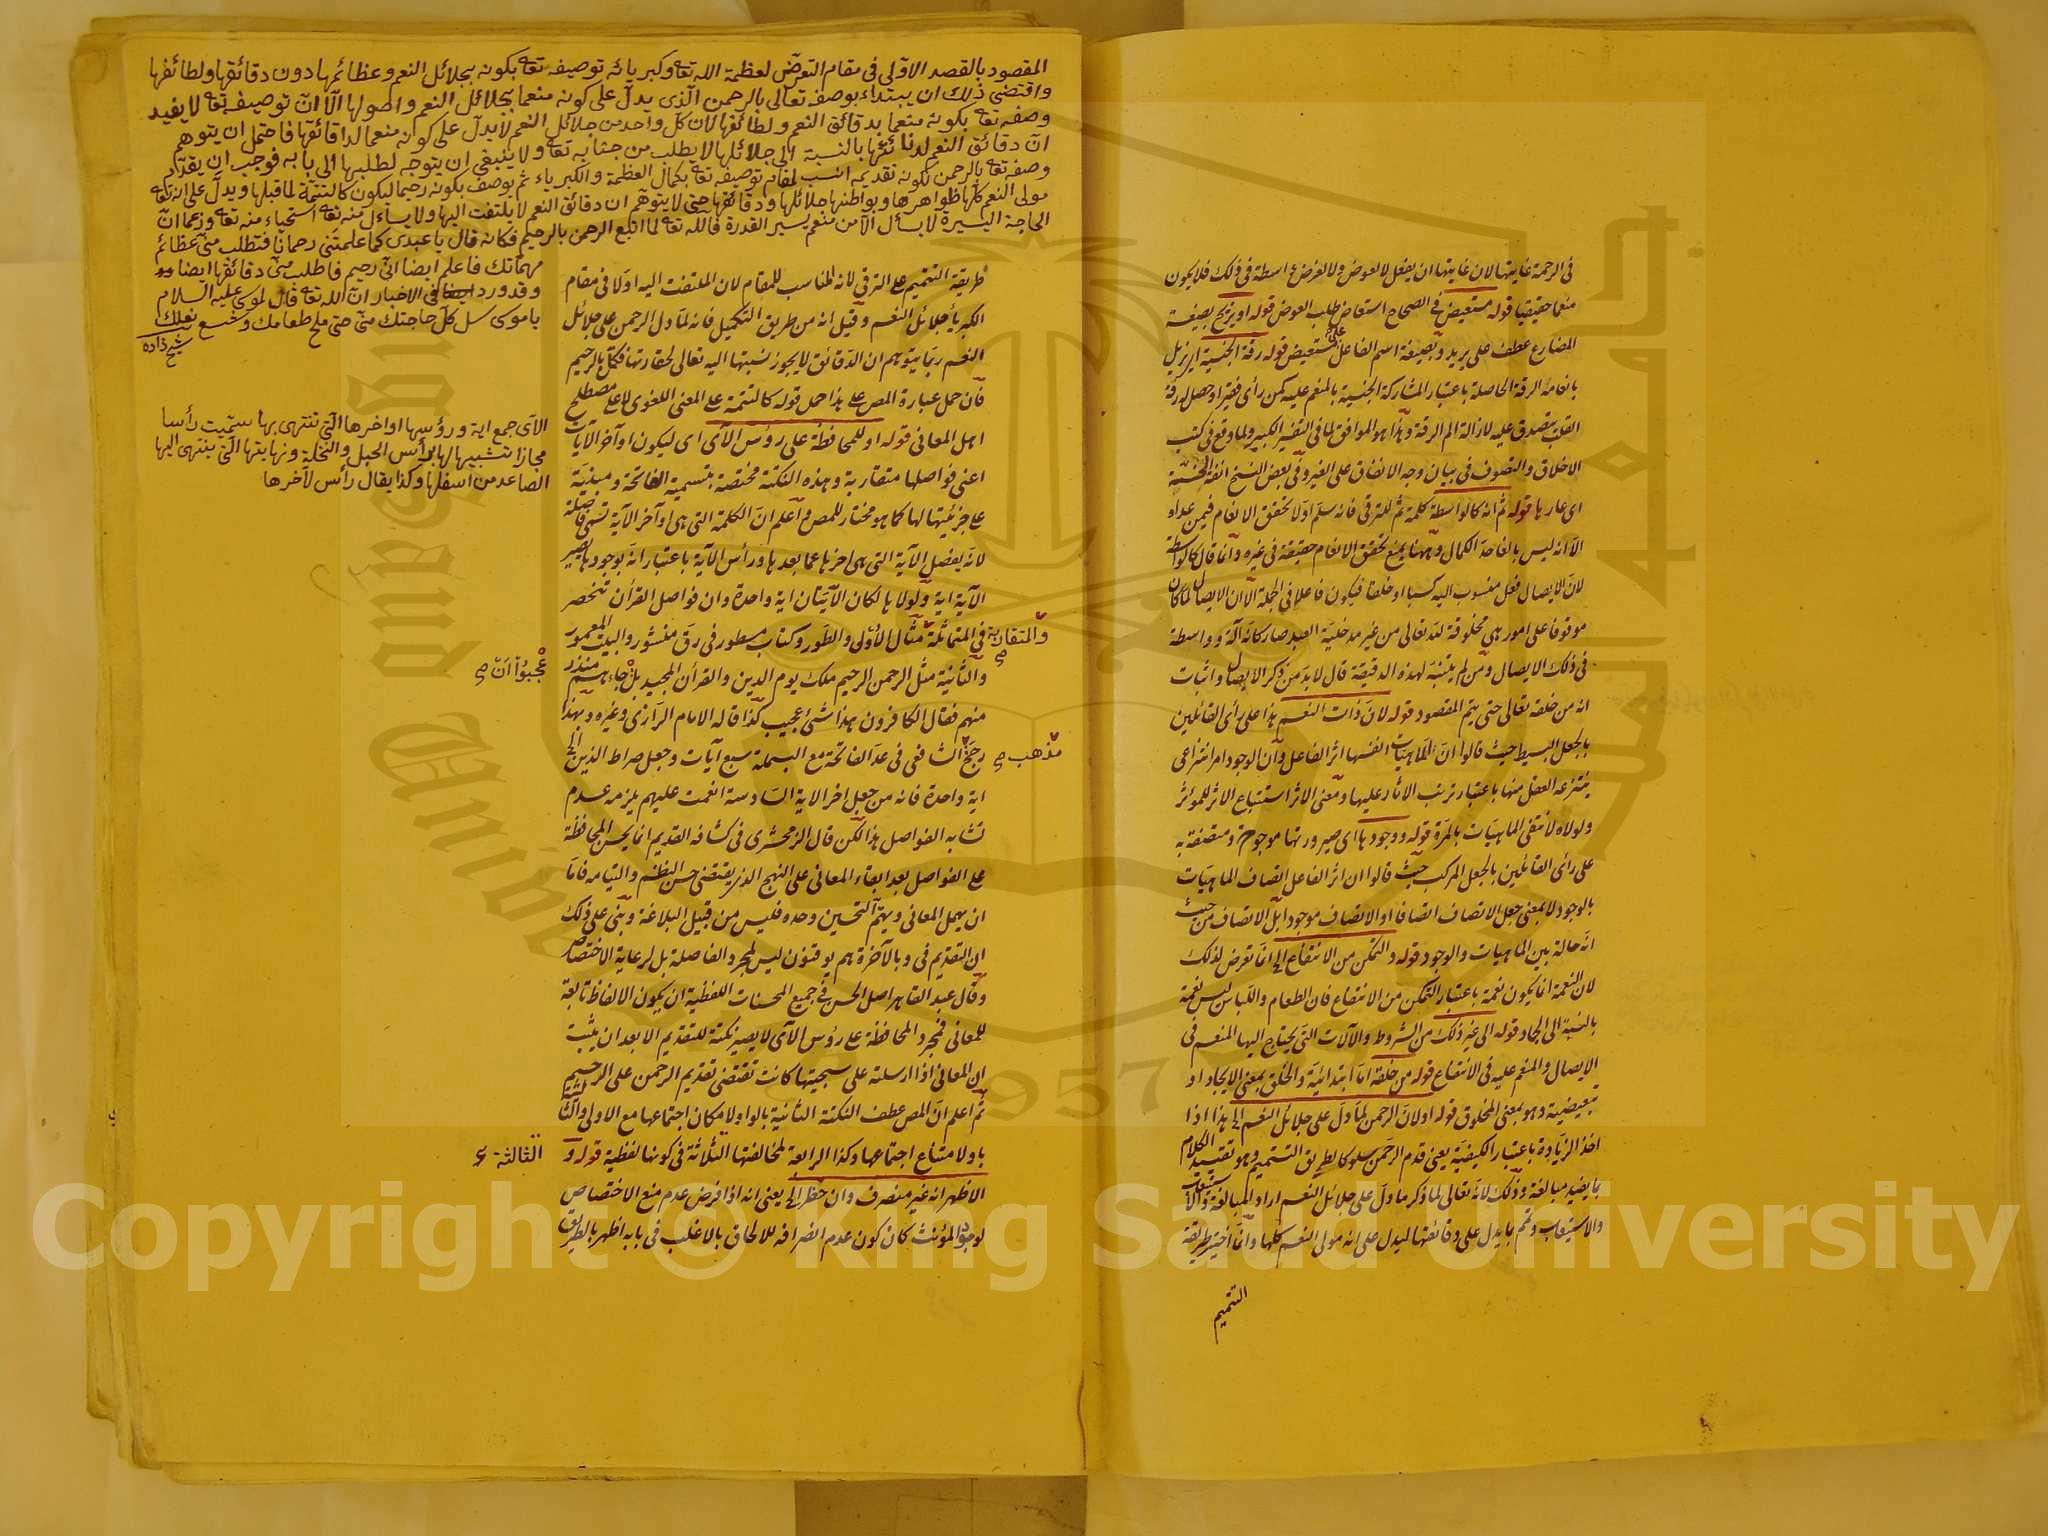 فى الرحمة غايتها لان غايتها ان يفعل لا لعوض ولا لغرض واسطة فى ذلك فلا يكون
منعما حقيقيا قوله مستعيض فى الصحاح استعاض طلب العوض قوله او يزيح بصيغة
المضارع عطف على يريد وبصيغة اسم الفاعل على مستعيض قوله رقة الجنسية اى يزيل
بانعامه الرقة الحاصلة باعتبار المشاركة الجنسية بالمنعم عليه كمن رأى فقيرا وحصل له رقة
القلب يتصدق عليه لازالة الم الرقة وهذا هو الموافق لما فى التفسير الكبير ولما وقع فى كتب
الاخلاق والتصوف فى بيان وجه الانفاق على الغير وفى بعض النسخ انفة الخسة
اى عارها قوله ثم انه كالواسطة كلمة ثم للترقى فانه سلم اولا تحقق الانعام فيمن عداه
الا انه ليس بالغا حد الكمال وههنا يمنع تحقق الانعام حقيقة فى غيره وانما قال كالواسطة
لان الايصال فعل منسوب اليه كسبا او خلقا فيكون فاعلا فى الجملة الا ان الايصال لما كان
موقوفا على امور هى مخلوقة لله تعالى من غير مدخلية العبد صار كانه آلة وواسطة
فى ذلك الايصال ومن لم يتنبه لهذه الدقيقة قال لا بد من ذكر الايصال واثبات
انه من خلقه تعالى حتى يتم المقصود قوله لان ذات النعم هذا على رأى القائلين
بالجعل البسيط حيث قالوا ان الماهيات انفسها اثر الفاعل وان الوجود امر انتزاعى
ينتزعه العقل منها باعتبار ترتب الاثار عليها ومعنى الاثر استتباع الاثر للموثر
ولولاه لانتفى الماهيات بالمرة قوله ووجودها اى صيرورتها موجودة ومتصفة به
على رأى القائلين بالجعل المركب حيث قالوا ان اثر الفاعل اتصاف الماهيات
بالوجود لا بمعنى جعل الاتصاف اتصافا او الاتصاف موجودا بل الاتصاف من حيث
انه حالة بين الماهيات والوجود قوله والتمكن من الانتفاع الخ انما تعرض لذلك
لان النعمة انما يكون نعمة باعتبار التمكن من الانتفاع فان الطعام واللباس ليس نعمة
بالنسبة الى الجماد قوله الى غير ذلك من الشروط والآلات التى يحتاج اليها المنعم فى
الايصال والمنعم عليه فى الانتفاع قوله من خلقه اما ابتدائية والخلق بمعنى الايجاد او
تبعيضية وهو بمعنى المخلوق قوله او لان الرحمن لما دل على جلائل النعم الخ هذا اذا
اخذ الزيادة باعتبار الكيفية يعنى قدم الرحمن سلوكا بطريق التتميم وهو تقييد الكلام
بما يفيد مبالغة وذلك لانه تعالى لما ذكر ما دل على جلائل النعم اراد المبالغة
والاستيعاب وتمم بما يدل على دقائقها ليدل على انه مولى النعم كلها وانما اختير طريقة
التتميم
المقصود بالقصد الاولى فى مقام التعرض لعظمة الله تعه وكبريائه توصيفه تعه بكونه بجلائل النعم وعظائمها دون دقائقها ولطائفها
واقتضى ذلك ان يبتداء بوصفه تعالى بالرحمن الذى يدل على كونه منعما بجلائل النعم واصولها الا ان توصيفه تعه لا يفيد
وصفه تعه بكونه منعما بدقائق النعم ولطائفها لان كل واحد من جلائل النعم لا يدل على كونه منعما لدقائقها فاحتمل ان يتوهم
ان دقائق النعم لدنائتها بالنسبة الى جلائلها لا يطلب من جنابه تعه ولا ينبغى ان يتوجه لطلبها الى بابه فوجب ان يقدم
وصفه تعه بالرحمن لكونه تقديمه انسب لمقام توصيفه تعه بكمال العظمة والكبرياء ثم يوصف بكونه رحيما ليكون كالتتمة لما قبلها ويدل على انه تعه
مولى النعم كلها ظواهرها وبواطنها جلائلها ودقائقها حتى لا يتوهم ان دقائق النعم لا يلتفت اليها ولا يسأل منه تعه استحياء منه تعه وزعما ان
الحاجة اليسيرة لا يسأل الا من منعم يسير القدرة فالله تعه لما اتبع الرحمن بالرحيم فكانه قال يا عبدى كما علمتنى رحمانا فتطلب منى عظائم
مهماتك فاعلم ايضا انى رحيم فاطلب منى دقائقها ايضا
وقد ورد فى الاخبار ان الله تعه قال لموسى عليه السلام
يا موسى سل كل حاجتك منى حتى ملح طعامك وشسع نعلك
شيخ زاده
طريقة التتميم على الترقى لانه المناسب للمقام لان الملتفت اليه اولا فى مقام
الكبرياء جلائل النعم وقيل انه من طريق التكميل فانه لما دل الرحمن على جلائل
النعم ربما يتوهم ان الدقائق لا يجوز نسبتها اليه تعالى لحقارتها فكمل بالرحيم
فان حمل عبارة المص على هذا حمل قوله كالتتمة على المعنى اللغوى لا على مصطلح
اهل المعانى قوله او للمحافظة على رؤس الآى اى ليكون اواخر الآيات
اعنى فواصلها متقاربة وهذه النكتة مختصة بتسمية الفاتحة ومبنية
على جزئيتها لها كما هو مختار المص واعلم ان الكلمة التى هى اواخر الآية تسمى فاصلة
لانه يفصل الآية التى هى اخرها عما بعدها ورأس الآية باعتبار انه بوجودها يصير
الآية اية ولولاها لكان الآيتان اية واحدة وان فواصل القرأن تنحصر
فى المتماثلة مثال الاولى والطور وكتاب مسطور فى رق منشور والبيت المعمور
والمتقاربة
والثانية مثل الرحمن الرحيم ملك يوم الدين والقرأن المجيد بل جاءهم منذر
عجبوا ان
منهم فقال الكافرون هذا شئ عجيب كذا قاله الامام الرازى وغيره وبهذا
رجح الشافعى فى عد الفاتحة مع البسملة سبع آيات وجعل صراط الذين الخ
مذهب
اية واحدة فانه من جعل اخر الاية السادسة انعمت عليهم يلزمه عدم
تشابه الفواصل هذا لكن قال الزمحشرى فى كشافه القديم انما يحسن المحافظة
على الفواصل بعد ابقاء المعانى على النهج الذى يقتضى حسن النظم والتيامه فاما
ان يهمل المعانى ويهتم التحسين وحده فليس من قبيل البلاغة وبنى على ذلك
ان التقديم فى وبالآخرة هم يوقنون ليس لمجرد الفاصلة بل لرعاية الاختصاص
وقال عبد القاهر اصل الحسن فى جميع المحسنات اللفظية ان يكون الالفاظ تابعة
للمعانى فمجرد المحافظة على رؤس الآى لا يصير نكتة للتقديم الا بعد ان يثبت
ان المعانى اذا ارسلت على سجيتها كانت تقتضى تقديم الرحمن على الرحيم
ثم اعلم ان المص عطف النكتة الثانية بالواو لامكان اجتماعها مع الاولى والثالثة
باو لامتناع اجتماعها وكذا الرابعة لمخالفتها الثلاثة فى كونها لفظية قوله و
الثالثة
الاظهر انه غير منصرف وان حظر الخ يعنى انه اذا فرض عدم منع الاختصاص
لوجود المؤنث كان كون عدم انصرافه للالحاق بالاغلب فى بابه اظهر بالطريق
الآى جمع اية ورؤسها اواخرها التى تنتهى بها سميت رأسا
مجازا تشبيها لها برأس الحبل والنخلة ونهايتها التى ينتهى اليها
الصاعد من اسفلها وكذا يقال رأس لآخرها
Copyright © King Saud University
King Saud University
1957